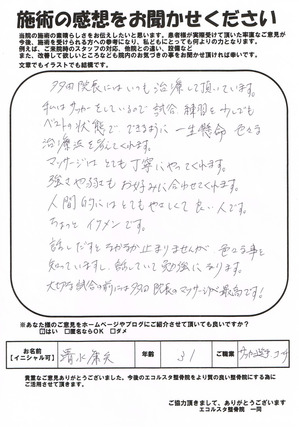 施術の感想をお聞かせください
当院の施術の素晴らしさをお伝えしたいと思います。患者様が実際受けて頂いた率直なご意見が
今後、施術を受けられる方への参考になり、私どもにとって何よりの力となります。
例えば、ご来院時のスタッフの対応、他院との違い、設備など
また、改善して欲しいところなども院内のお気づきの事を頂ければ幸いです。
文章でもイラストでも結構です。
多田院長にはいつも治療して頂いています。
私はサッカーをしているので試合、練習を少しでも
ベストの状態でできるように一生懸命 色々な
治療法を
マッサージはとても丁寧にやってくれます。
強さや弱さもお好みに合わせてくれます。
人間的にはとてもやさしくて良い人です。
ちょっとイケメンです。
話しだすとなかなか止まりませんが 色々な事を
知っていますし、話していて勉強になります。
大切な試合の前には多田院長のマッサージが最高です!
※あなた様のご意見をホームページやブログにご紹介させて頂いても良いですか?
はい □匿名ならOK □ダメ
お名前
【イニシャル可】
清水康
年齢
31
ご職業
貴重なご意見ありがとうございました。今後のエコルスタ整骨院をより質の良い整骨院にする為に
ご活用させて頂きます。
ご協力頂きまして、ありがとうございます
エコルスタ整骨院 一同